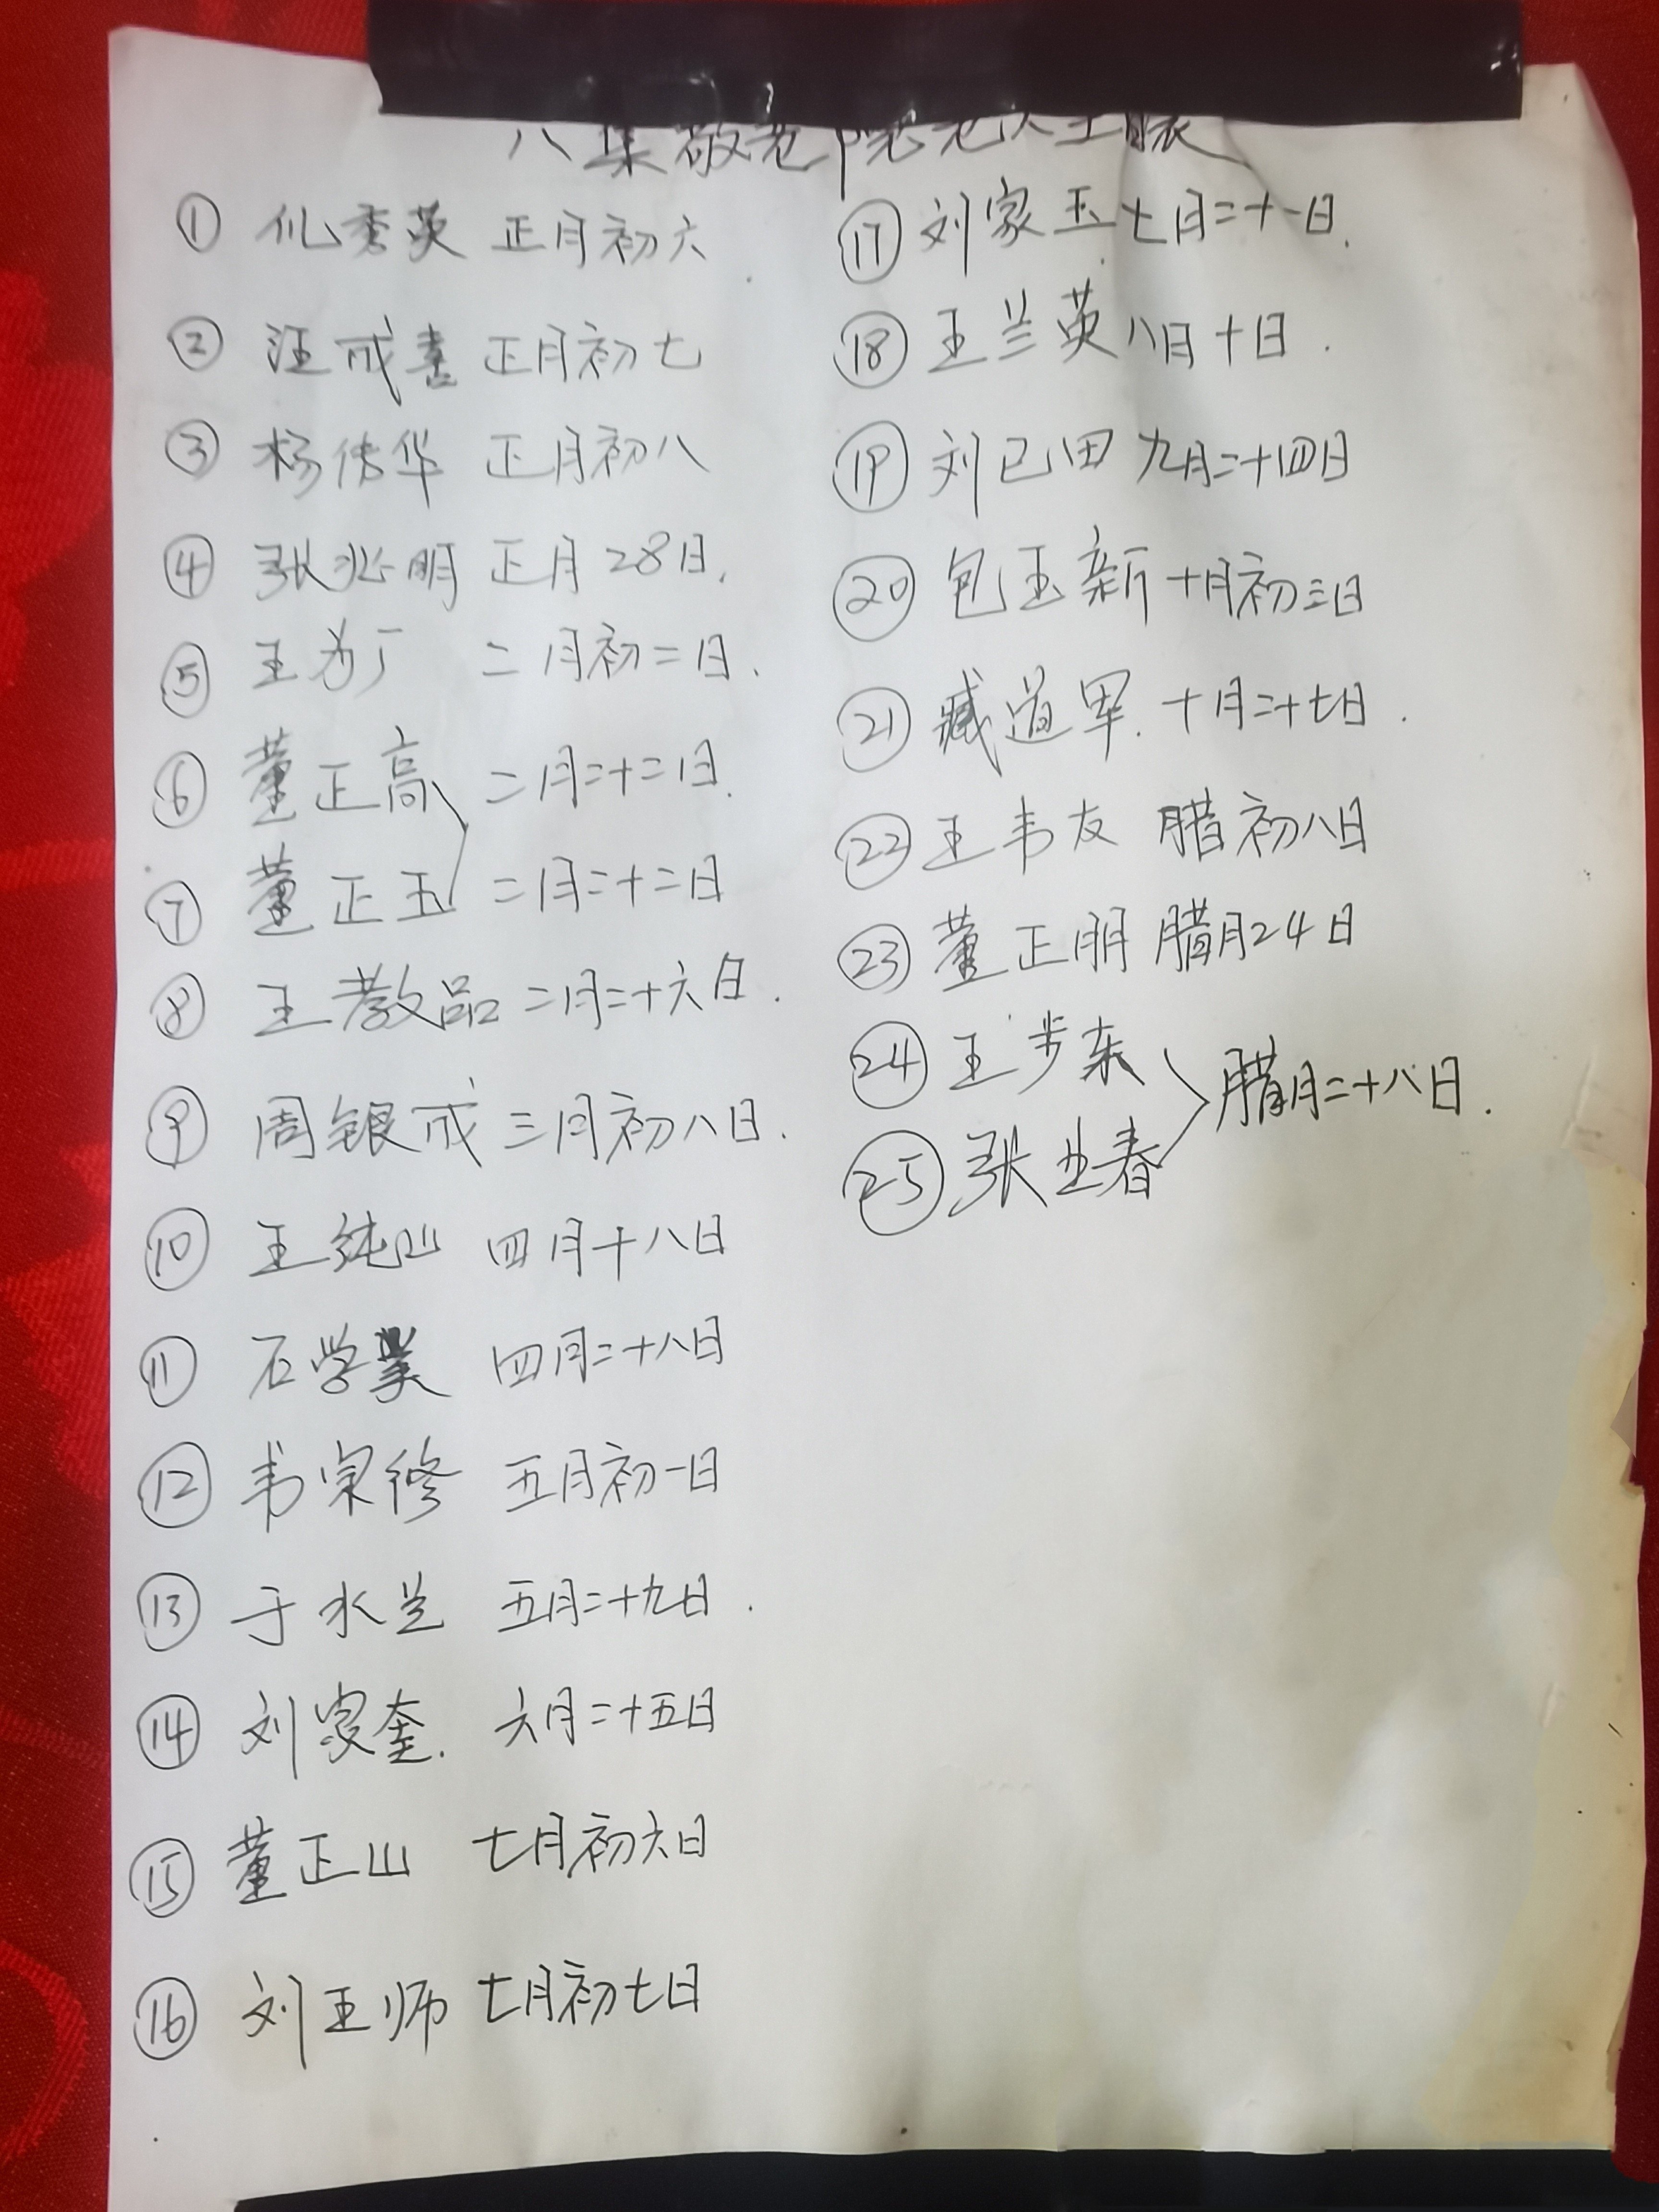 八集敬老院老人生日表
① 仇秀英 正月初六
② 汪成喜 正月初七
③ 杨传华 正月初八
④ 张兆明 正月28日.
⑤ 王为广 二月初二日.
⑥ 董正高 二月二十二日.
⑦ 董正玉 二月二十二日
⑧ 王教品 二月二十六日.
⑨ 周银成 三月初八日.
⑩ 王纯山 四月十八日
⑪ 石学美 四月二十八日
⑫ 韦宗修 五月初一日
⑬ 于水兰 五月二十九日.
⑭ 刘家奎. 六月二十五日
⑮ 董正山 七月初六日
⑯ 刘玉师 七月初七日
⑰ 刘家玉 七月二十一日.
⑱ 王兰英 八日十日.
⑲ 刘已田 九月二十四日
⑳ 包玉新 十月初三日
㉑ 臧道军. 十月二十七日.
㉒ 王韦友 腊初八日
㉓ 董正朋 腊月24日
㉔ 王步东 腊月二十八日.
㉕ 张立春